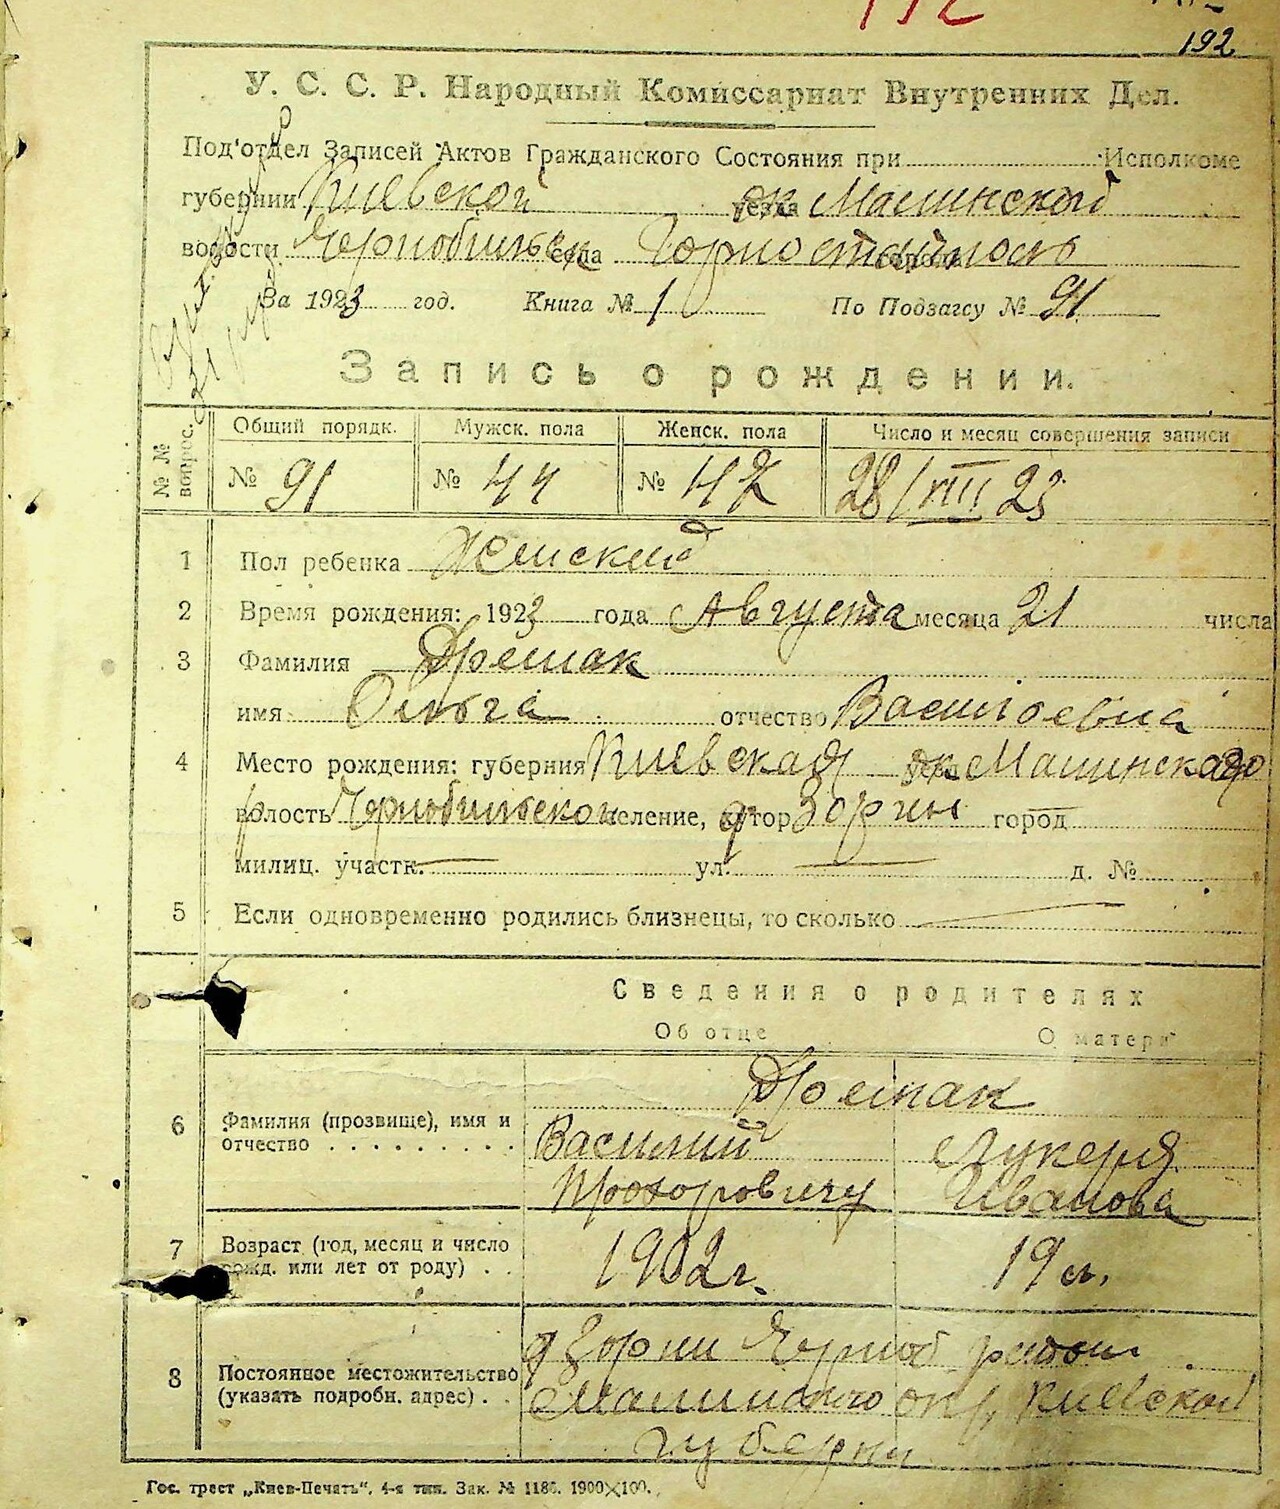 192
У. С. С. Р. Народный Комиссариат Внутренних Дел.
Под'отдел Записей Актов Гражданского Состояния при Исполкоме
губернии Киевской уезда ок Малинской
волости Чернобильск села Горностайполь
За 1923 год. Книга № 1 По Подзагсу № 91
Запись о рождении.
№ № вопрос. Общий порядк. Мужск. пола Женск. пола Число и месяц совершения записи
№ 91 № 44 № 47 28/VIII 23
1 Пол ребенка Женский
2 Время рождения: 1923 года Августа месяца 21 числа
3 Фамилия Дремак
имя Ольга отчество Васильевна
4 Место рождения: губерния Киевская ок Малинского
волость Чернобильской селение, хутор Зорин город
милиц. участк. ул. д. №
5 Если одновременно родились близнецы, то сколько
Сведения о родителях
Об отце О матери
Дремак
6 Фамилия (прозвище), имя и отчество Василий Лукерия
Прохорович Иванова
7 Возраст (год, месяц и число рожд. или лет от роду) 1902 г. 19 л.
8 Постоянное местожительство (указать подробн. адрес) д Зорин Черноб район
Малинского окр, Киевской
губерни
Гос. трест „Киев-Печать“. 4-я тип. Зак. № 1186. 1900×100.